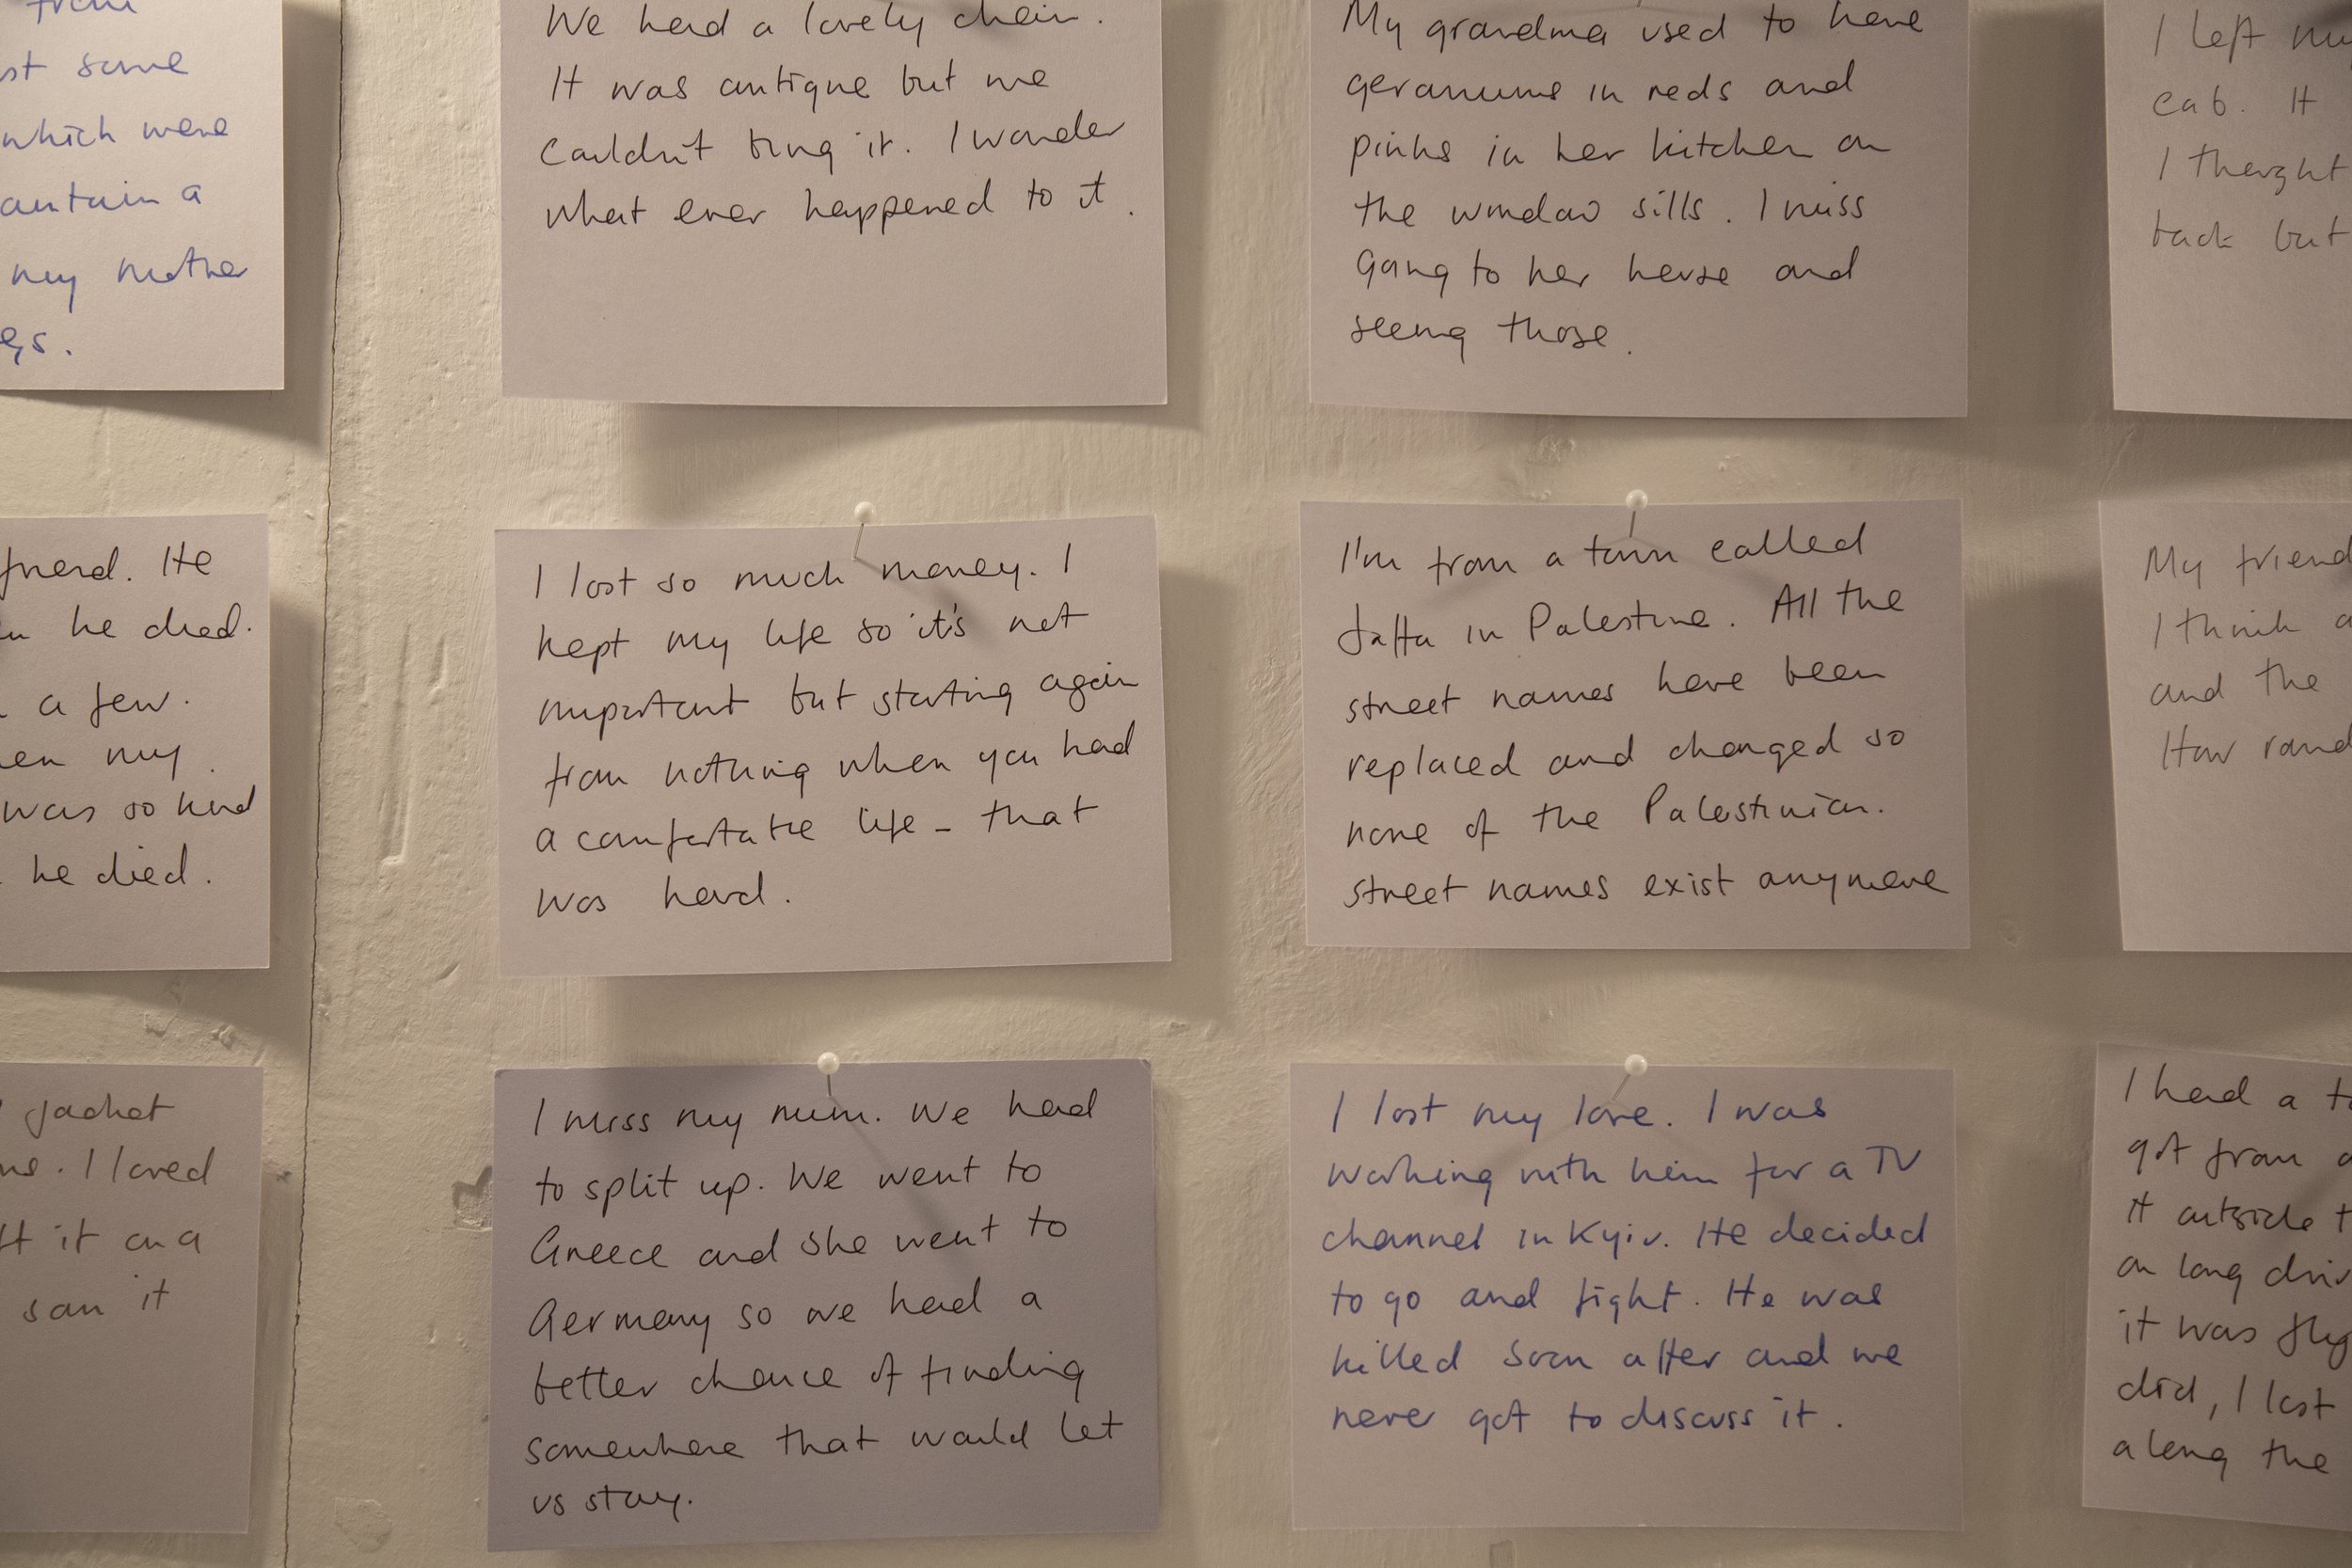 from
st some
which were
contain a
my mother
gs.
We had a lovely chair.
It was antique but we
couldn't bring it. I wonder
what ever happened to it.
My grandma used to have
geraniums in reds and
pinks in her kitchen on
the window sills. I miss
going to her house and
seeing those.
I left my
cab. It
I thought
back but
friend. He
he died.
a few.
en my
was so kind
he died.
I lost so much money. I
kept my life so it's not
important but starting again
from nothing when you had
a comfortable life - that
was hard.
I'm from a town called
Jaffa in Palestine. All the
street names have been
replaced and changed so
none of the Palestinian.
street names exist anymore
My friend
I think a
and the
How rand
jacket
me. I loved
ft it on a
saw it
I miss my mum. We had
to split up. We went to
Greece and she went to
Germany so we had a
better chance of finding
somewhere that would let
us stay.
I lost my love. I was
working with him for a TV
channel in Kyiv. He decided
to go and fight. He was
killed soon after and we
never got to discuss it.
I had a t
got from a
it outside t
on long driv
it was fly
did, I lost
along the